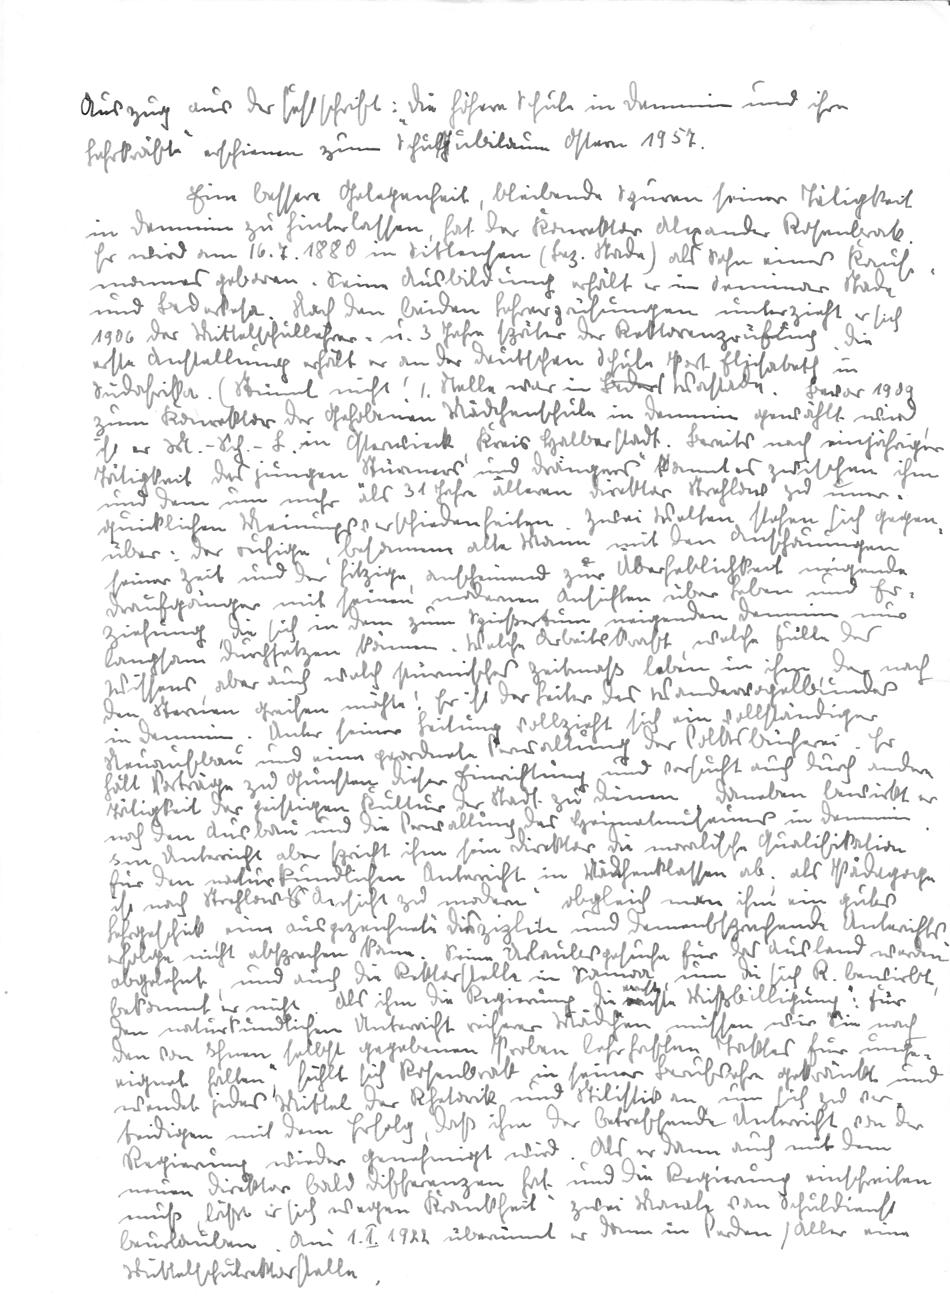 Auszug aus der Festschrift: „Die höhere Schule in Demmin und ihre
Lehrkräfte" erschienen zum Schuljubiläum Ostern 1957.
Eine bessere Gelegenheit, bleibende Spuren seiner Tätigkeit
in Demmin zu hinterlassen, hat der Konrektor Alexander Rosenbrock.
Er wird am 16.7.1880 in Sittensen (Bez. Stade) als Sohn eines Kauf-
mannes geboren. Seine Ausbildung erhält er im Seminar Stade
und Bederkesa. Nach den beiden Lehrerprüfungen unterzieht er sich
1906 der Mittelschullehrer- u. 3 Jahre später der Rektorenprüfung. Die
erste Anstellung erhält er an der deutschen Schule Port Elisabeth in
Südafrika. (Stimmt nicht! 1. Stelle war in Worstade. Bevor 1909
zum Konrektor der Gehobenen Mädchenschule in Demmin gewählt wird
ist er M.-Sch.-L. in Osterwieck, Kreis Halberstadt. Bereits nach einjähriger
Tätigkeit des jungen „Stürmers und Drängers" kommt es zwischen ihm
und dem um mehr als 31 Jahre älteren Direktor Strehlow zu uner-
quicklichen Meinungsverschiedenheiten. Zwei Welten stehen sich gegen-
über: der ruhige, besonnene alte Mann mit den Anschauungen
seiner Zeit und der hitzige, anscheinend zur Überheblichkeit neigende
Draufgänger mit seinen modernen Ansichten über Leben und Er-
ziehung, die sich in dem zum Spießertum neigenden Demmin nur
langsam durchsetzen können. Welche Arbeitskraft, welche Fülle des
Wissens, aber auch welch stürmisches Zeitmaß leben in ihm, der nach
den Sternen greifen möchte! Er ist der Leiter des Wandervogelbundes
in Demmin. Unter seiner Leitung vollzieht sich ein vollständiger
Neuaufbau und eine geordnete Verwaltung der Volksbücherei. Er
hält Vorträge zu Gunsten dieser Einrichtung und versucht auch durch andere
Tätigkeit der geistigen Kultur der Stadt zu dienen. Daneben bewirkt er
noch den Ausbau und die Verwaltung des Heimatmuseums in Demmin.
Im Unterricht aber spricht ihm sein Direktor die moralische Qualifikation
für den naturkundlichen Unterricht in Mädchenklassen ab. Als Pädagoge
ist nach Strehlows Ansicht zu „modern" obgleich man ihm ein gutes
Lehrgeschick eine ausgezeichnete Disziplin und dementsprechende Unterrichts-
erfolge nicht absprechen kann. Seine Urlaubsgesuche für das Ausland werden
abgelehnt, und auch die Rektorstelle in Samoa, um die sich R. bewirbt,
bekommt er nicht. Als ihm die Regierung die ernste Mißbilligung": „Für
den naturkundlichen Unterricht reiferer Mädchen müssen wir Sie nach
den von Ihnen selbst gegebenen Proben lehrhaften Taktes für unge-
eignet halten", fühlt sich Rosenbrock in seiner Berufsehre gekränkt und
wendet jedes Mittel der Rhetorik und Stilistik an, um sich zu ver-
teidigen mit dem Erfolg, daß ihm der betreffende Unterricht von der
Regierung wieder genehmigt wird. Als er dann auch mit dem
neuen Direktor bald Differenzen hat und die Regierung einschreiten
muß, läßt er sich „wegen Krankheit" zwei Monate vom Schuldienst
beurlauben. Am 1.I.1922 übernimmt er dann in Verden / Aller eine
Mittelschulrektorstelle.